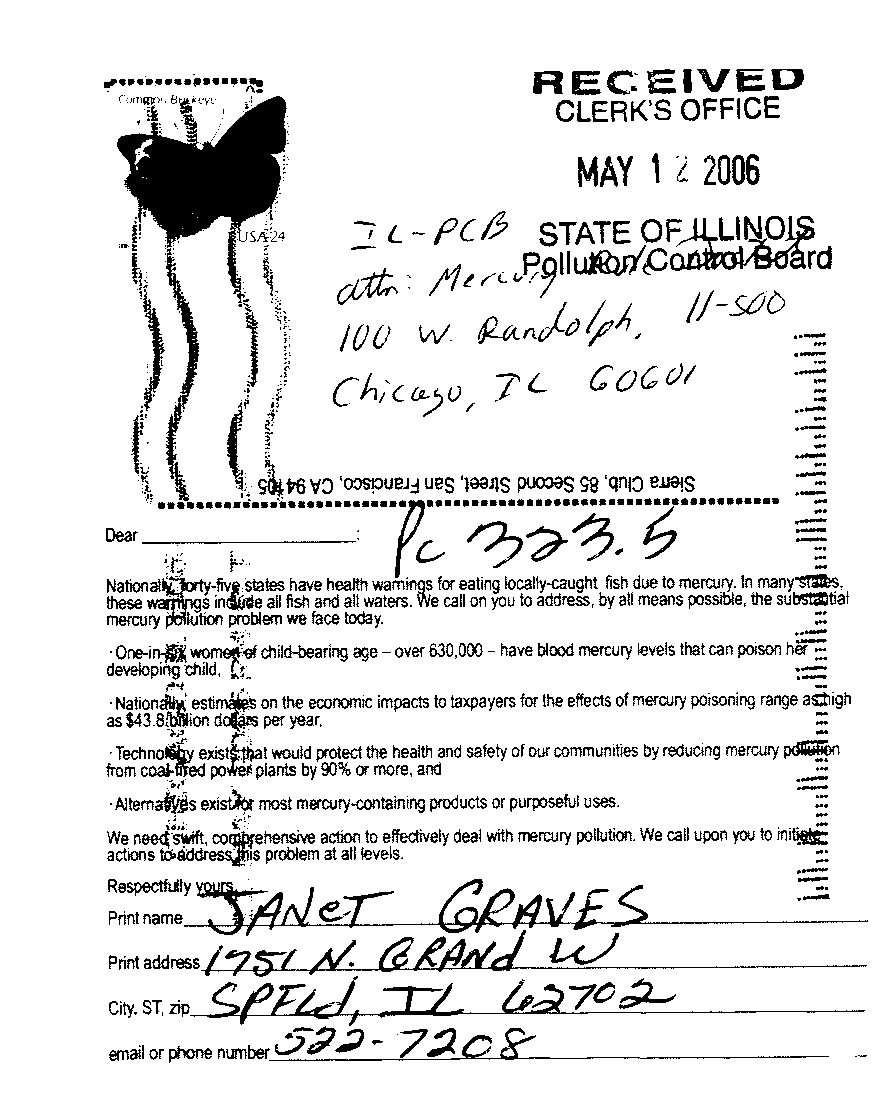 Common Buckeye
USA 24
RECEIVED
CLERK'S OFFICE
MAY 12 2006
STATE OF ILLINOIS
Pollution Control Board
IL-PCB
attn: Mercury Rule
100 W. Randolph, 11-500
Chicago, IL 60601
Sierra Club, 85 Second Street, San Francisco, CA 94105
Pc 323.5
Dear :
Nationally, forty-five states have health warnings for eating locally-caught fish due to mercury. In many states,
these warnings include all fish and all waters. We call on you to address, by all means possible, the substantial
mercury pollution problem we face today.
· One-in-six women of child-bearing age – over 630,000 – have blood mercury levels that can poison her
developing child,
· Nationally, estimates on the economic impacts to taxpayers for the effects of mercury poisoning range as high
as $43.8 billion dollars per year,
· Technology exists that would protect the health and safety of our communities by reducing mercury pollution
from coal-fired power plants by 90% or more, and
· Alternatives exist for most mercury-containing products or purposeful uses.
We need swift, comprehensive action to effectively deal with mercury pollution. We call upon you to initiate
actions to address this problem at all levels.
Respectfully yours,
Print name JANET GRAVES
Print address 1751 N. GRANd W
City, ST, zip SPFLd, IL 62702
email or phone number 522-7208